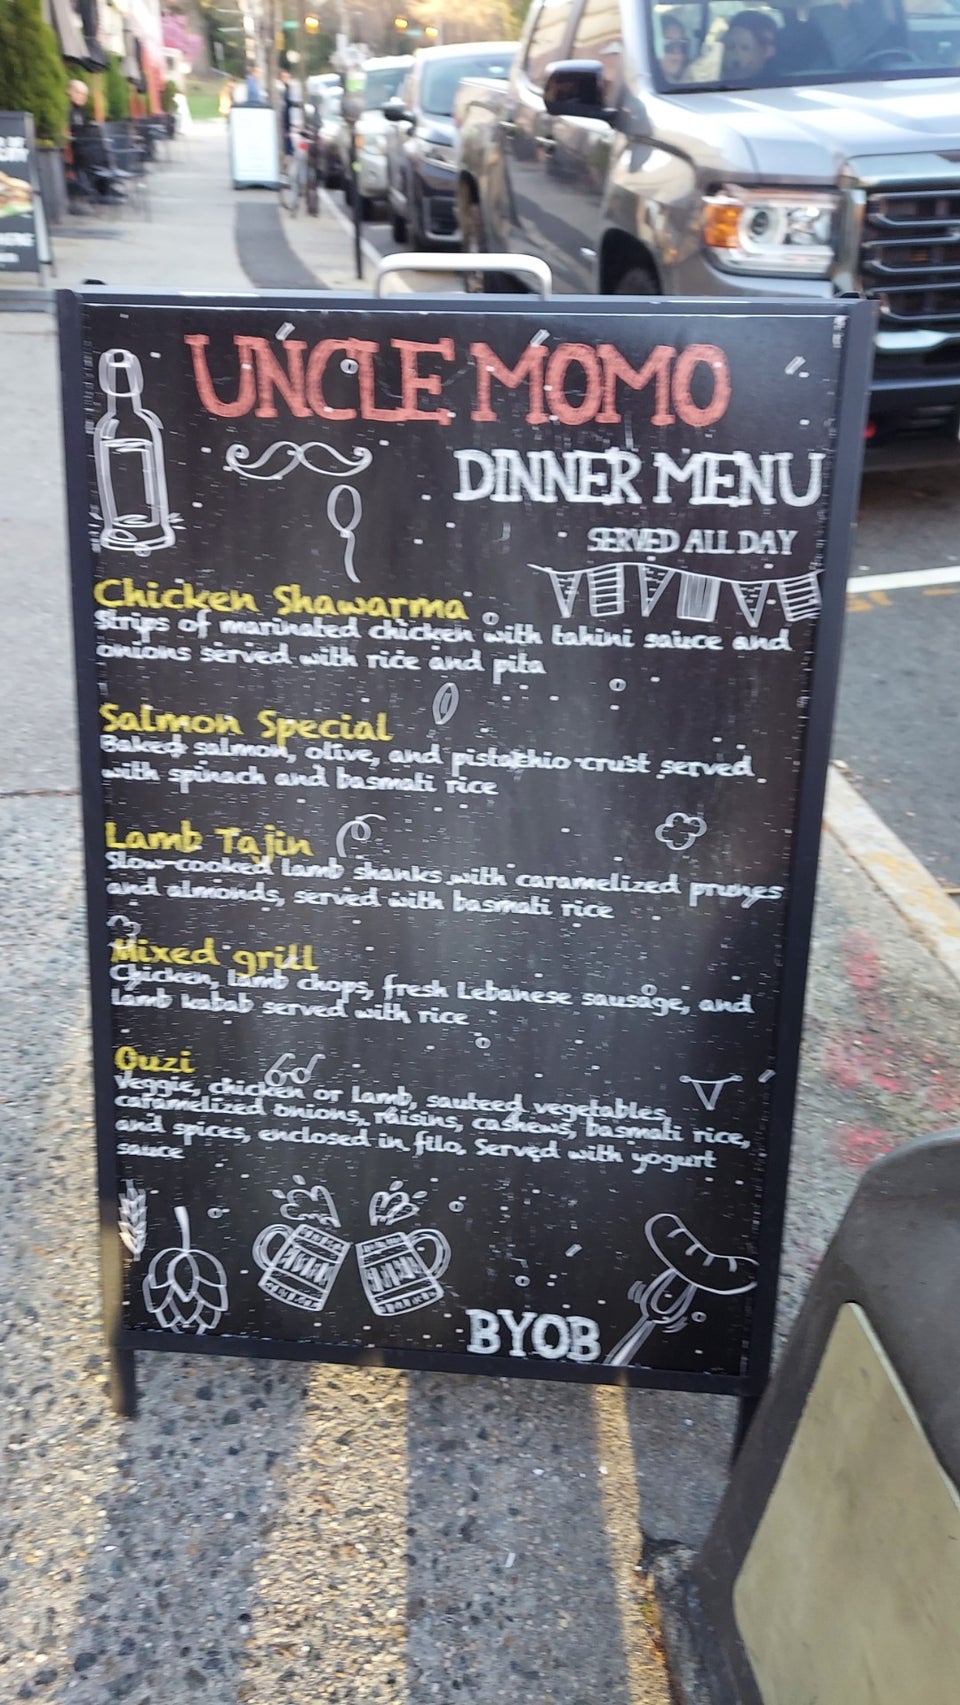 UNCLE MOMO
DINNER MENU
SERVED ALL DAY
Chicken Shawarma
Strips of marinated chicken with tahini sauce and
onions served with rice and pita
Salmon Special
Baked salmon, olive, and pistachio crust served
with spinach and basmati rice
Lamb Tajin
Slow-cooked lamb shanks with caramelized prunes
and almonds, served with basmati rice
Mixed grill
Chicken, lamb chops, fresh Lebanese sausage, and
lamb kabab served with rice
Ouzi
Veggie, chicken or lamb, sauteed vegetables,
caramelized onions, raisins, cashews, basmati rice,
and spices, enclosed in filo. Served with yogurt
sauce
BYOB